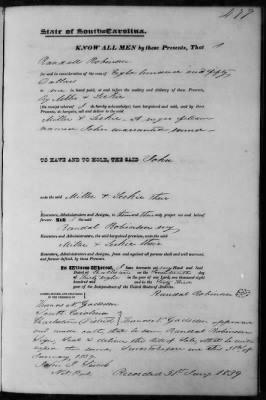 487
State of South Carolina.
KNOW ALL MEN by these Presents, That I
Randall Robinson
for and in consideration of the sum of Eight hundred and fifty
Dollars
to me in hand paid, at and before the sealing and delivery of these Presents,
by Miller &
(the receipt whereof I do hereby acknowledge) have bargained and sold, and by these
Presents, do bargain, sell and deliver to the said
Miller & A negro fellow
named John warranted sound
TO HAVE AND TO HOLD, THE SAID John
unto the said Miller & their
Executors, Administrators and Assigns, to them and their only proper use and behoof
forever. And I the said
Randal Robinson my
Executors, Administrators and Assigns, the said bargained premises, unto the said
Miller & their
Executors, Administrators and Assigns, from and against all persons shall and will warrant,
and forever defend, by these Presents.
In Witness Whereof, I have hereunto set my Hand and Seal
Dated at on the
day of in the year of our Lord, one thousand eight
hundred and and in the Sixty third
year of the Independence of the United States of America.
SIGNED, SEALED AND DELIVERED
IN THE PRESENCE OF
Randal Robinson
Thomas N Gadsden
South Carolina
Charleston District Thomas N Gadsden appeared
and made oath, that he saw Randal Robinson
Sign, Seal & deliver this bill of Sale, that he
Sworn to before me this 31st of
January 1839.
Recorded 31st Jany 1839